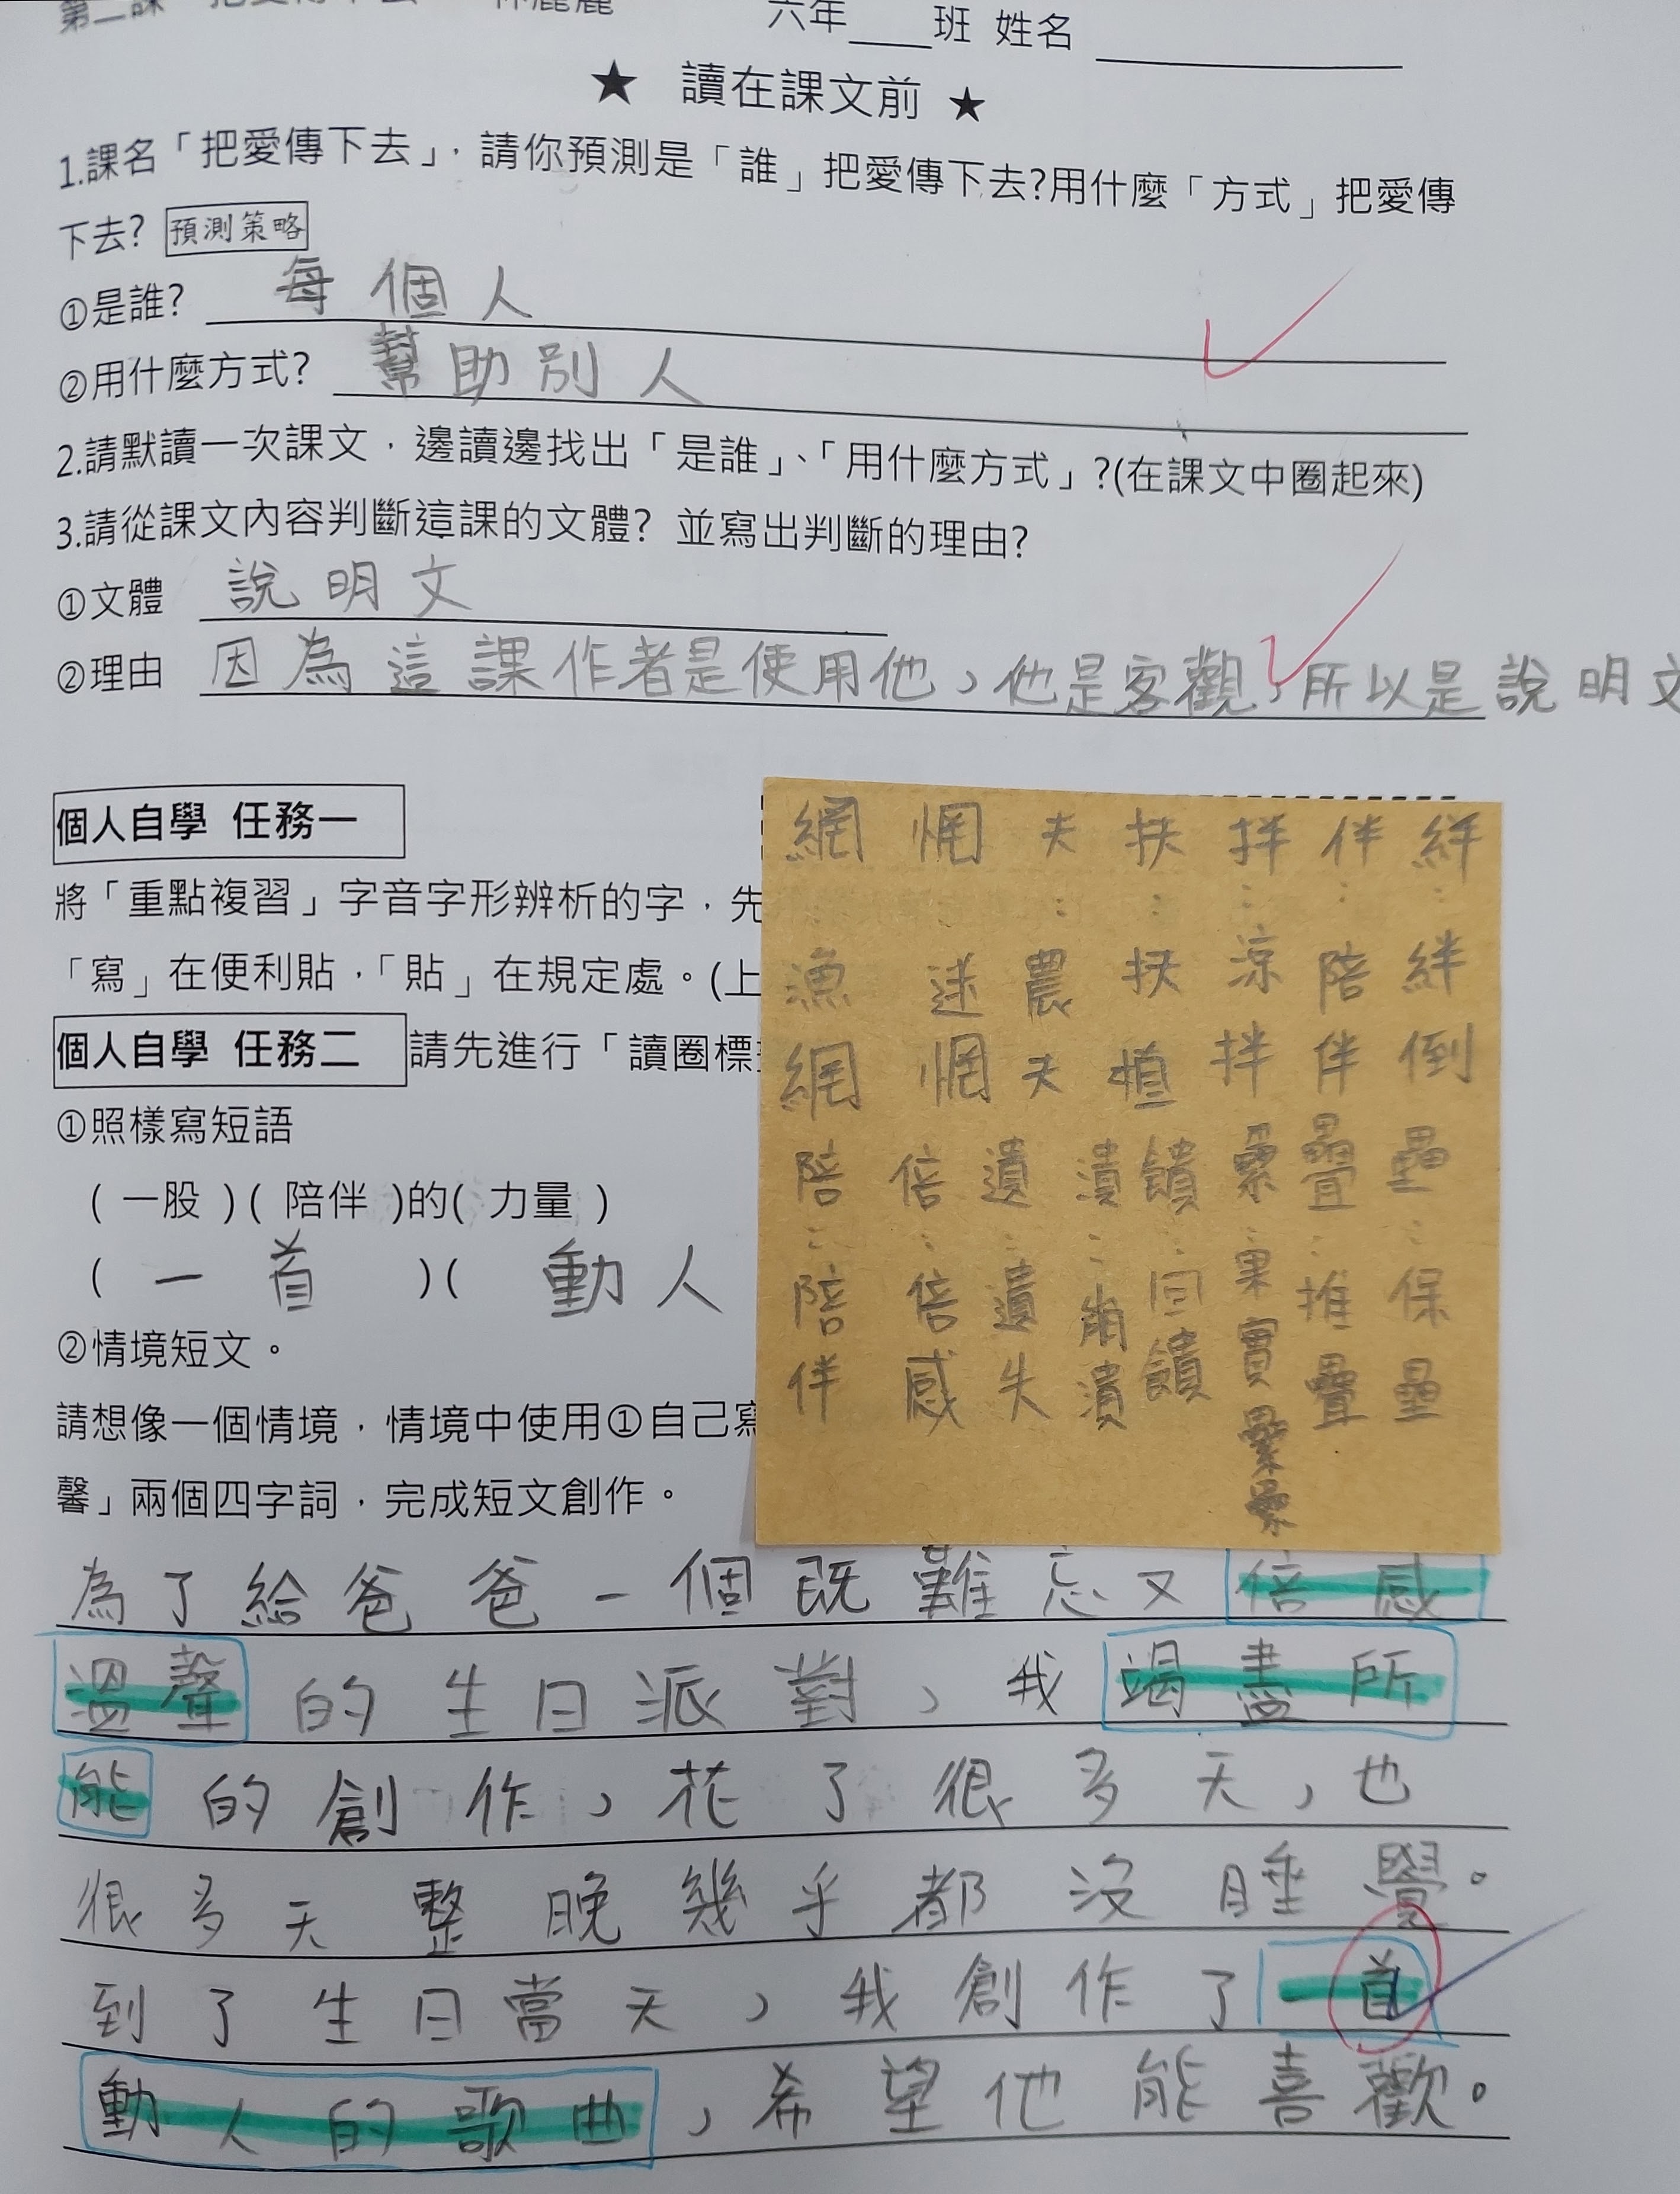 第二課 把愛傳下去
六年____班 姓名
★ 讀在課文前 ★
1.課名「把愛傳下去」,請你預測是「誰」把愛傳下去?用什麼「方式」把愛傳
下去? 預測策略
①是誰? 每個人
②用什麼方式? 幫助別人
2.請默讀一次課文,邊讀邊找出「是誰」、「用什麼方式」?(在課文中圈起來)
3.請從課文內容判斷這課的文體? 並寫出判斷的理由?
①文體 說明文
②理由 因為這課作者是使用他,他是客觀,所以是說明文
個人自學 任務一
將「重點複習」字音字形辨析的字,先
「寫」在便利貼,「貼」在規定處。(上
個人自學 任務二 請先進行「讀圈標
①照樣寫短語
( 一股 )( 陪伴 )的( 力量 )
( 一首 )( 動人
②情境短文。
請想像一個情境,情境中使用①自己寫
馨」兩個四字詞,完成短文創作。
絆:絆倒
伴:陪伴
拌:涼拌
扶:扶植
夫:農夫
惘:迷惘
網:漁網
壘:保壘
疊:推疊
纍:果實纍纍
饋:回饋
潰:崩潰
遺:遺失
倍:倍感
陪:陪伴
為了給爸爸一個既難忘又倍感
溫馨的生日派對,我竭盡所
能的創作,花了很多天,也
很多天整晚幾乎都沒睡覺。
到了生日當天,我創作了一首
動人的歌曲,希望他能喜歡。